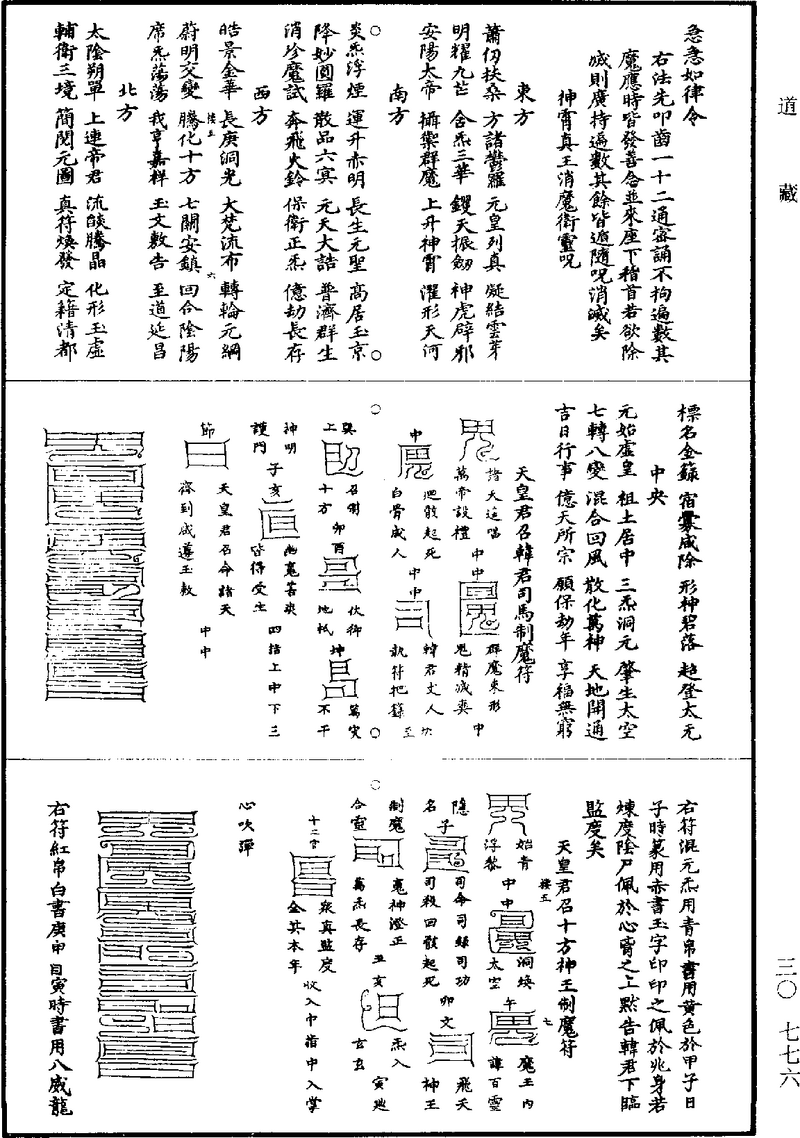 道藏
三〇 七七六
急急如律令
右法先叩齒一十二通密誦不拘遍數其
魔應時皆發善念並來座下稽首若欲除
滅則廣持遍數其餘皆遁隨呪消滅矣
神霄真王消魔衛靈呪
東方
蕭仞扶桑 方諸鬱羅 元皇列真 凝結雲芽
明耀九芒 含炁三華 鑊天振劒 神虎辟邪
安陽太帝 攝禦群魔 上升神霄 濯形天河
南方
炎炁浮煙 運升赤明 長生元聖 高居玉京
降妙圓羅 散品六冥 元天大誥 普濟群生
消珍魔試 奔飛火鈴 保衛正炁 億劫長存
西方
皓景金華 長庚洞光 大梵流布 轉輪元綱
蔚明交變 騰化十方 七關安鎮 回合陰陽
席炁蕩蕩 我享嘉祥 玉文敷告 至道延昌
接五
六
北方
太陰朔單 上連帝君 流燄騰晶 化形玉虛
輔衛三境 簡閱元圖 真符煥發 定籍清都
標名金籙 宿釁咸除 形神碧落 超登太无
中央
元始虛皇 祖土居中 三炁洞元 肇生太空
七轉八變 混合回風 散化萬神 天地開通
吉日行事 億天所宗 願保劫年 享福無窮
天皇君召韓君司馬制魔符
諸天返唱
萬帝設禮
中中
群魔束形
鬼精滅爽
中
中
迴骸起死
白骨成人
中中
韓君丈人
執符把籙
巽上
召制
十方
卯酉
伏御
地祇
坤
萬灾
不干
神明
護門
子亥
幽魂苦爽
皆得受生
四指上中下三
節
天皇君召命諸天
齊到咸遵玉敕
中中
右符混元炁用青帛書用黃色於甲子日
子時篆用赤書玉字印印之佩於兆身若
煉度陰尸佩於心膂之上默告韓君下臨
監度矣
天皇君召十方神王制魔符
始青
浮黎
接五
中中
洞煥
太空
午
七
魔王內
諱百靈
隱
名
子
司命司錄司功
司殺回骸起死
卯文
飛天
神王
制魔
合靈
魂神澄正
萬炁長存
丑亥
炁入
玄玄
寅處
十二宮
眾真監度
金其本年
收入中指中入掌
心吹彈
右符紅帛白書庚申日寅時書用八威龍